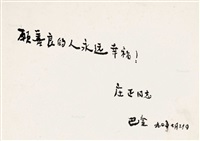 愿善良的人永远幸福！
庄正同志
巴金